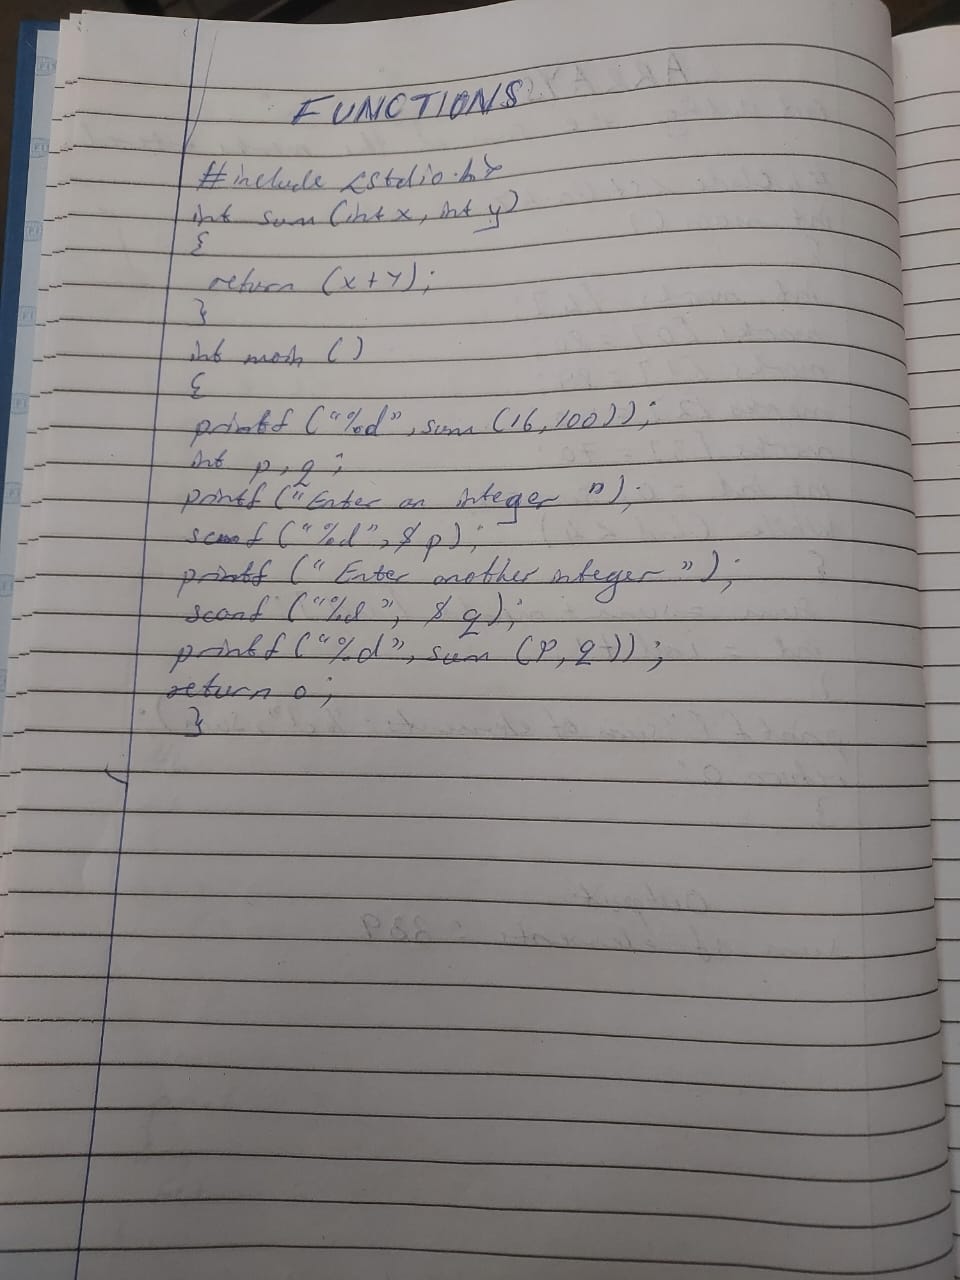 FUNCTIONS
#include <stdio.h>
int sum (int x, int y)
{
return (x+y);
}
int main ()
{
printf ("%d", sum (16,100));
int p, q;
printf ("Enter an integer ");
scanf ("%d", $ p);
printf ("Enter another integer ");
scanf ("%d", $ q);
printf ("%d", sum (p, q));
return 0;
}